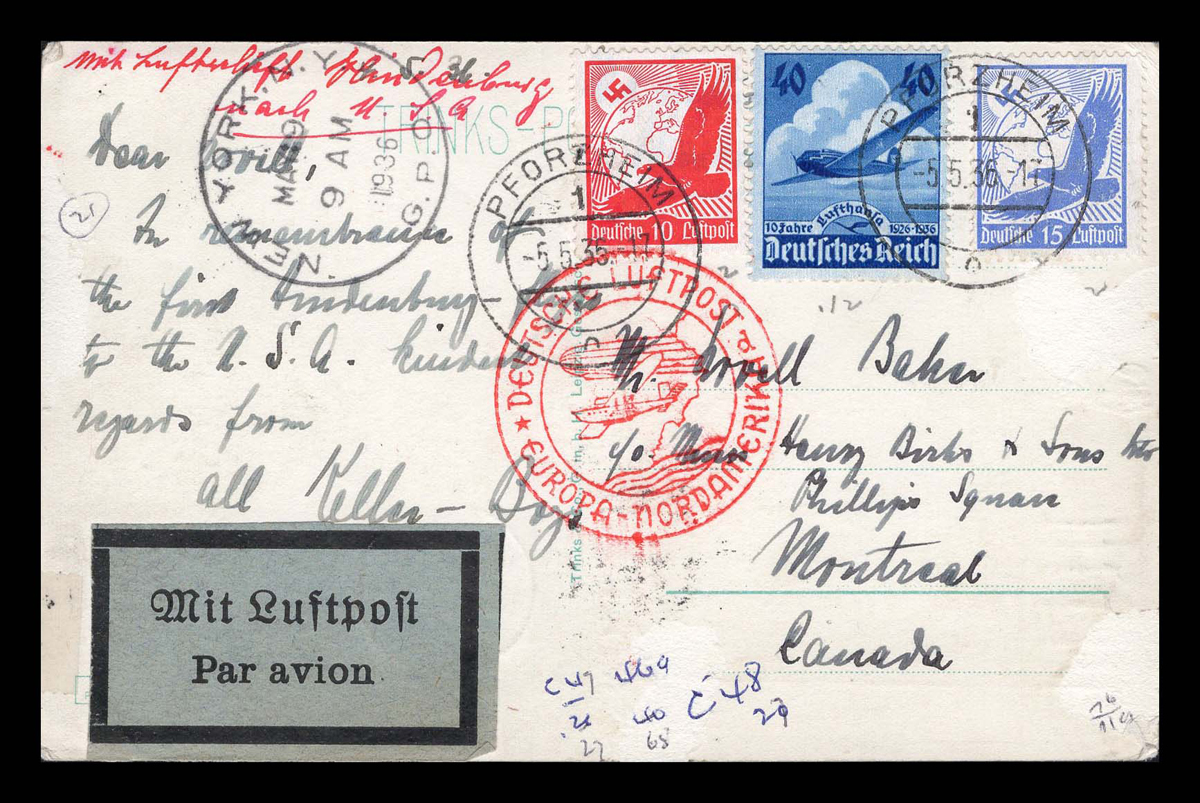 mit Luftschiff Hindenburg
nach U.S.A
TRINKS-PO
NEW YORK, N.Y.
MAY 9
9 AM
1936
G.P.O.
N.
Deutsche 10 Luftpost
40 40
10 Jahre Lufthansa 1926-1936
Deutsches Reich
Deutsche 15 Luftpost
PFORZHEIM
1
-5.5.36.-17
PFORZHEIM
1
-5.5.36.17
DEUTSCHE LUFTPOST
EUROPA-NORDAMERIKA
21
Dear Orvill,
In remembrance of
the first Hindenburg-
to the U.S.A. kindest
regards from
all Keller-Boys
Mr. Orvill Baker
c/o. Henry Birks & Sons
Phillips Square
Montreal
Canada
Mit Luftpost
Par avion
Trinks
C 48
29
40
27 68